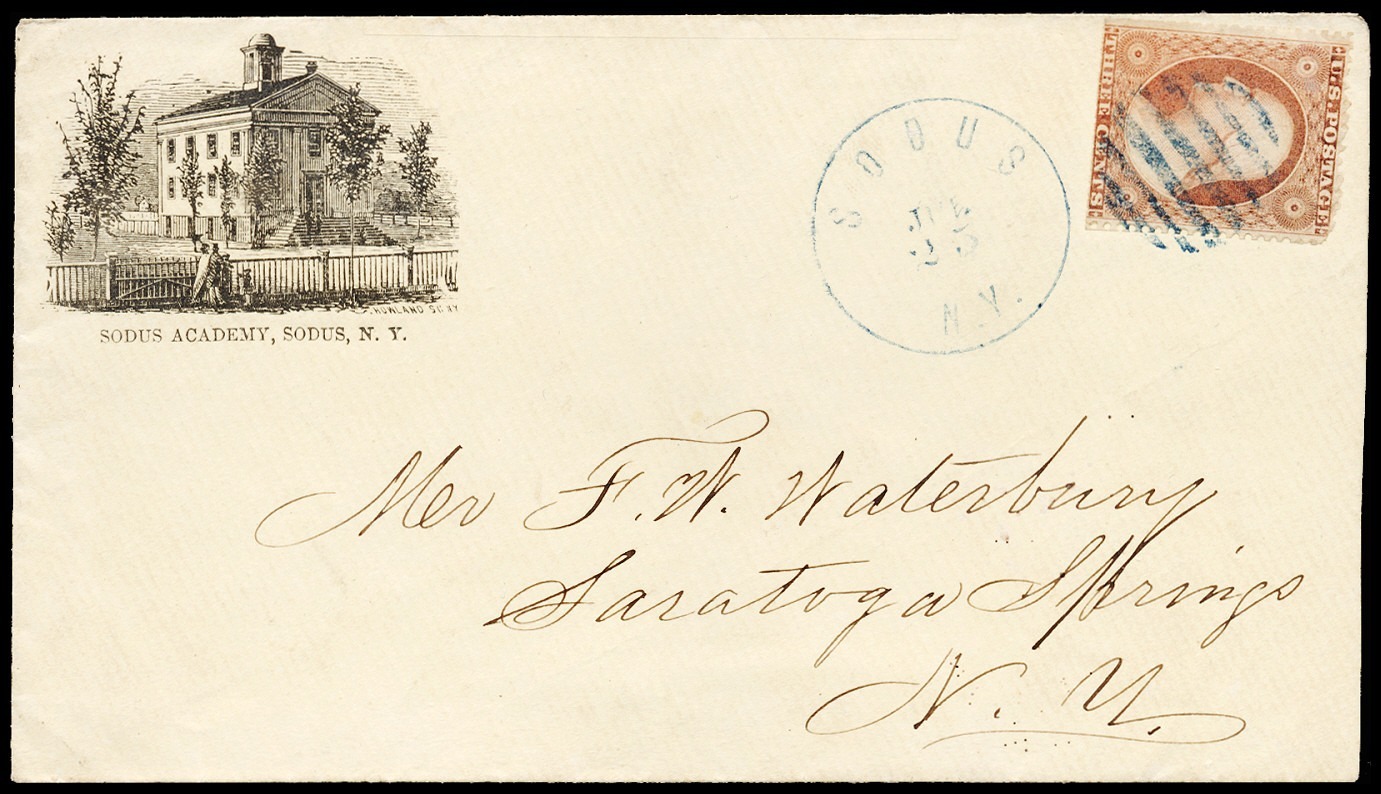 SODUS ACADEMY, SODUS, N. Y.
SODUS
N.Y.
U.S. POSTAGE
THREE CENTS
Mr F. W. Waterbury
Saratoga Springs
N. Y.